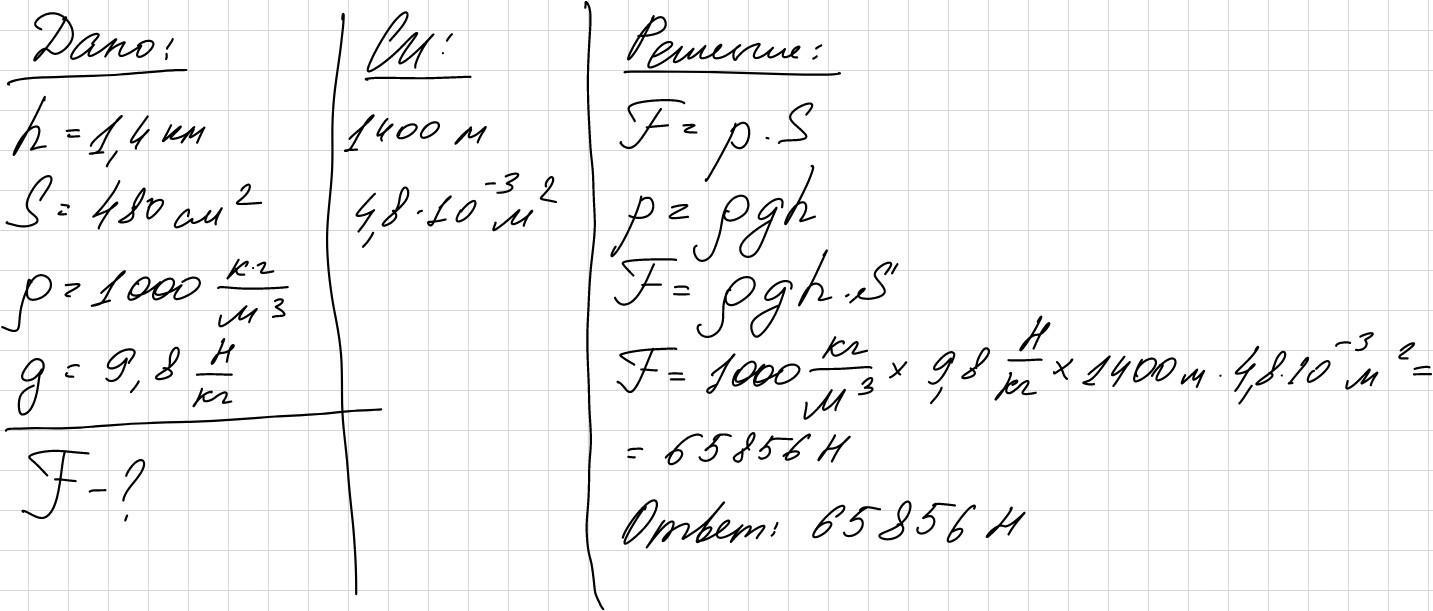 Дано:
h = 1,4 км
S = 480 см²
ρ = 1000 кг/м³
g = 9,8 Н/кг
F - ?
СИ:
1400 м
4,8 · 10⁻³ м²
Решение:
F = p · S
p = ρgh
F = ρgh · S
F = 1000 кг/м³ × 9,8 Н/кг × 1400 м · 4,8 · 10⁻³ м² =
= 65856 Н
Ответ: 65856 Н